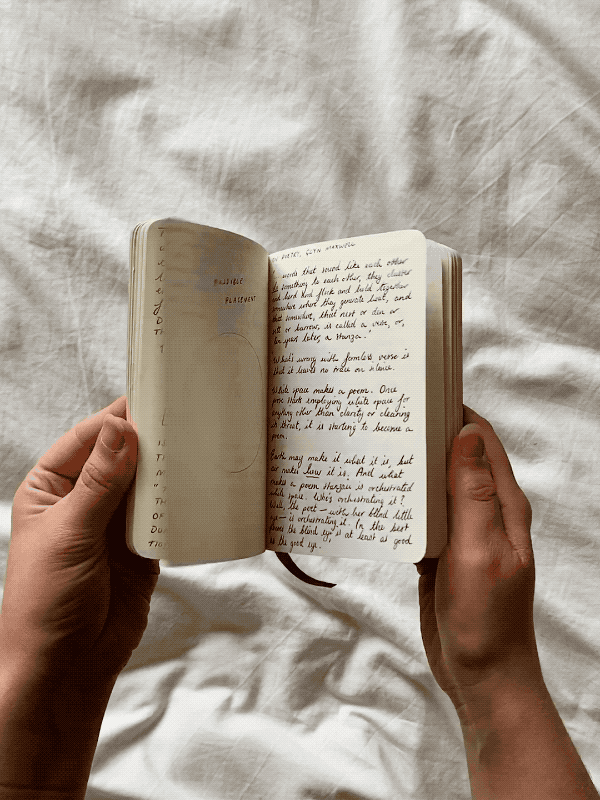 POSSIBLE
PLACEMENT
POETRY, GLYN MAXWELL
words that sound like each other
do something to each other, they cluster
and herd and flock and build together
somewhere where they generate heat, and
that somewhere, that nest or den or
sett or burrow, is called a verse, or,
ten years later, a stanza.
What's wrong with formless verse is
that it leaves no trace on silence.
White space makes a poem. Once
prose starts employing white space for
anything other than clarity or clearing
its throat, it is starting to become a
poem.
Earth may make it what it is, but
air makes how it is. And what
makes a poem stanzaic is orchestrated
white space. Who's orchestrating it?
Well, the poet – with her blind little
eye – is orchestrating it. In the best
poems the blind eye is at least as good
as the good eye.